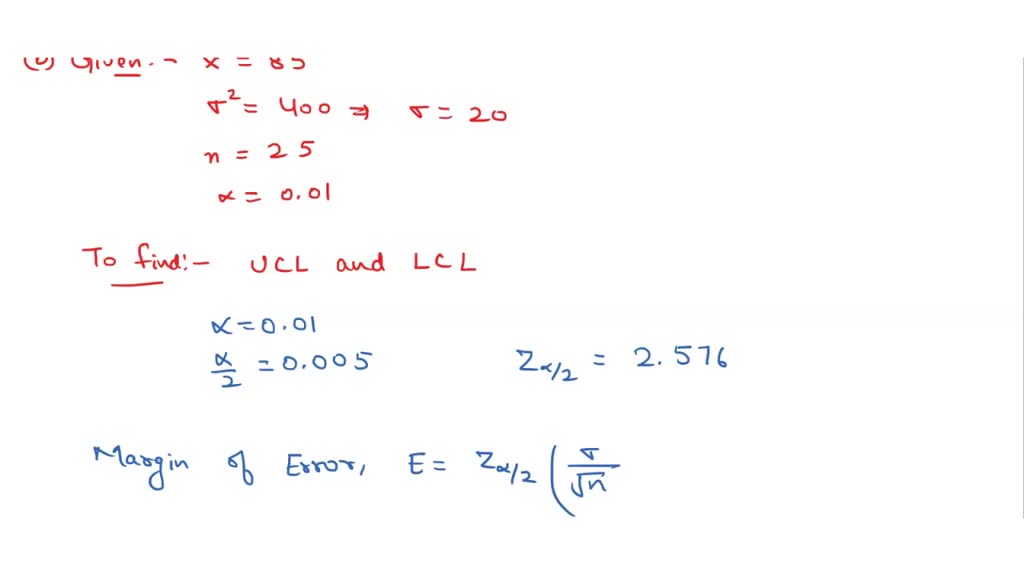 Given:- x =
σ² = 400 ⇒ σ = 20
n = 25
α = 0.01
To find:- UCL and LCL
α = 0.01
α/2 = 0.005 Zα/2 = 2.576
Margin of Error, E = Zα/2 (σ/√n